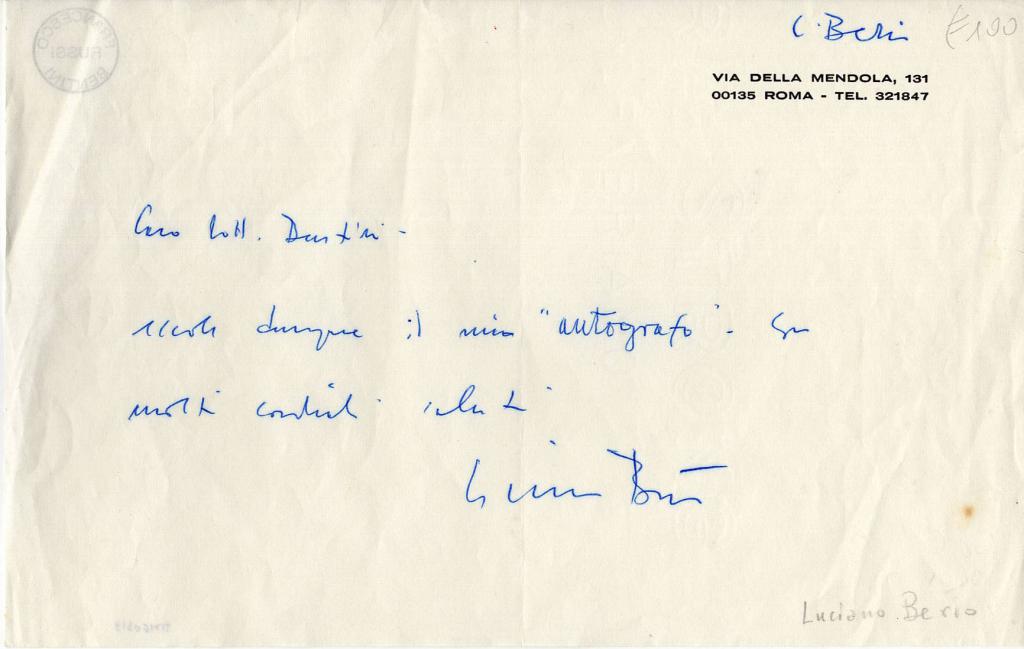 L. Berio €100
VIA DELLA MENDOLA, 131
00135 ROMA - TEL. 321847
Caro Dott.
eccole dunque il mio "autografo". Con
molti cordiali saluti
Luciano Berio
Luciano Berio